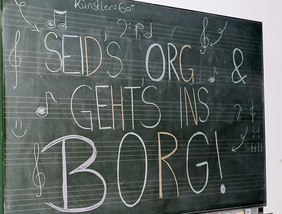 Künstler: Gar
SEIDS ORG &
GEHTS INS
BORG!